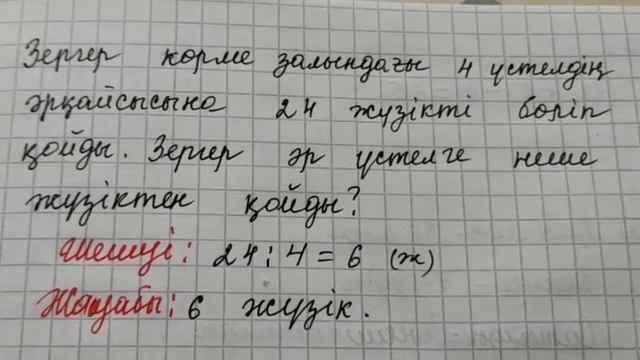 Зергер көрме залындағы 4 үстелдің
әрқайсысына 24 жүзікті бөліп
қойды. Зергер әр үстелге неше
жүзіктен қойды?
Шешуі: 24 : 4 = 6 (ж)
Жауабы: 6 жүзік.